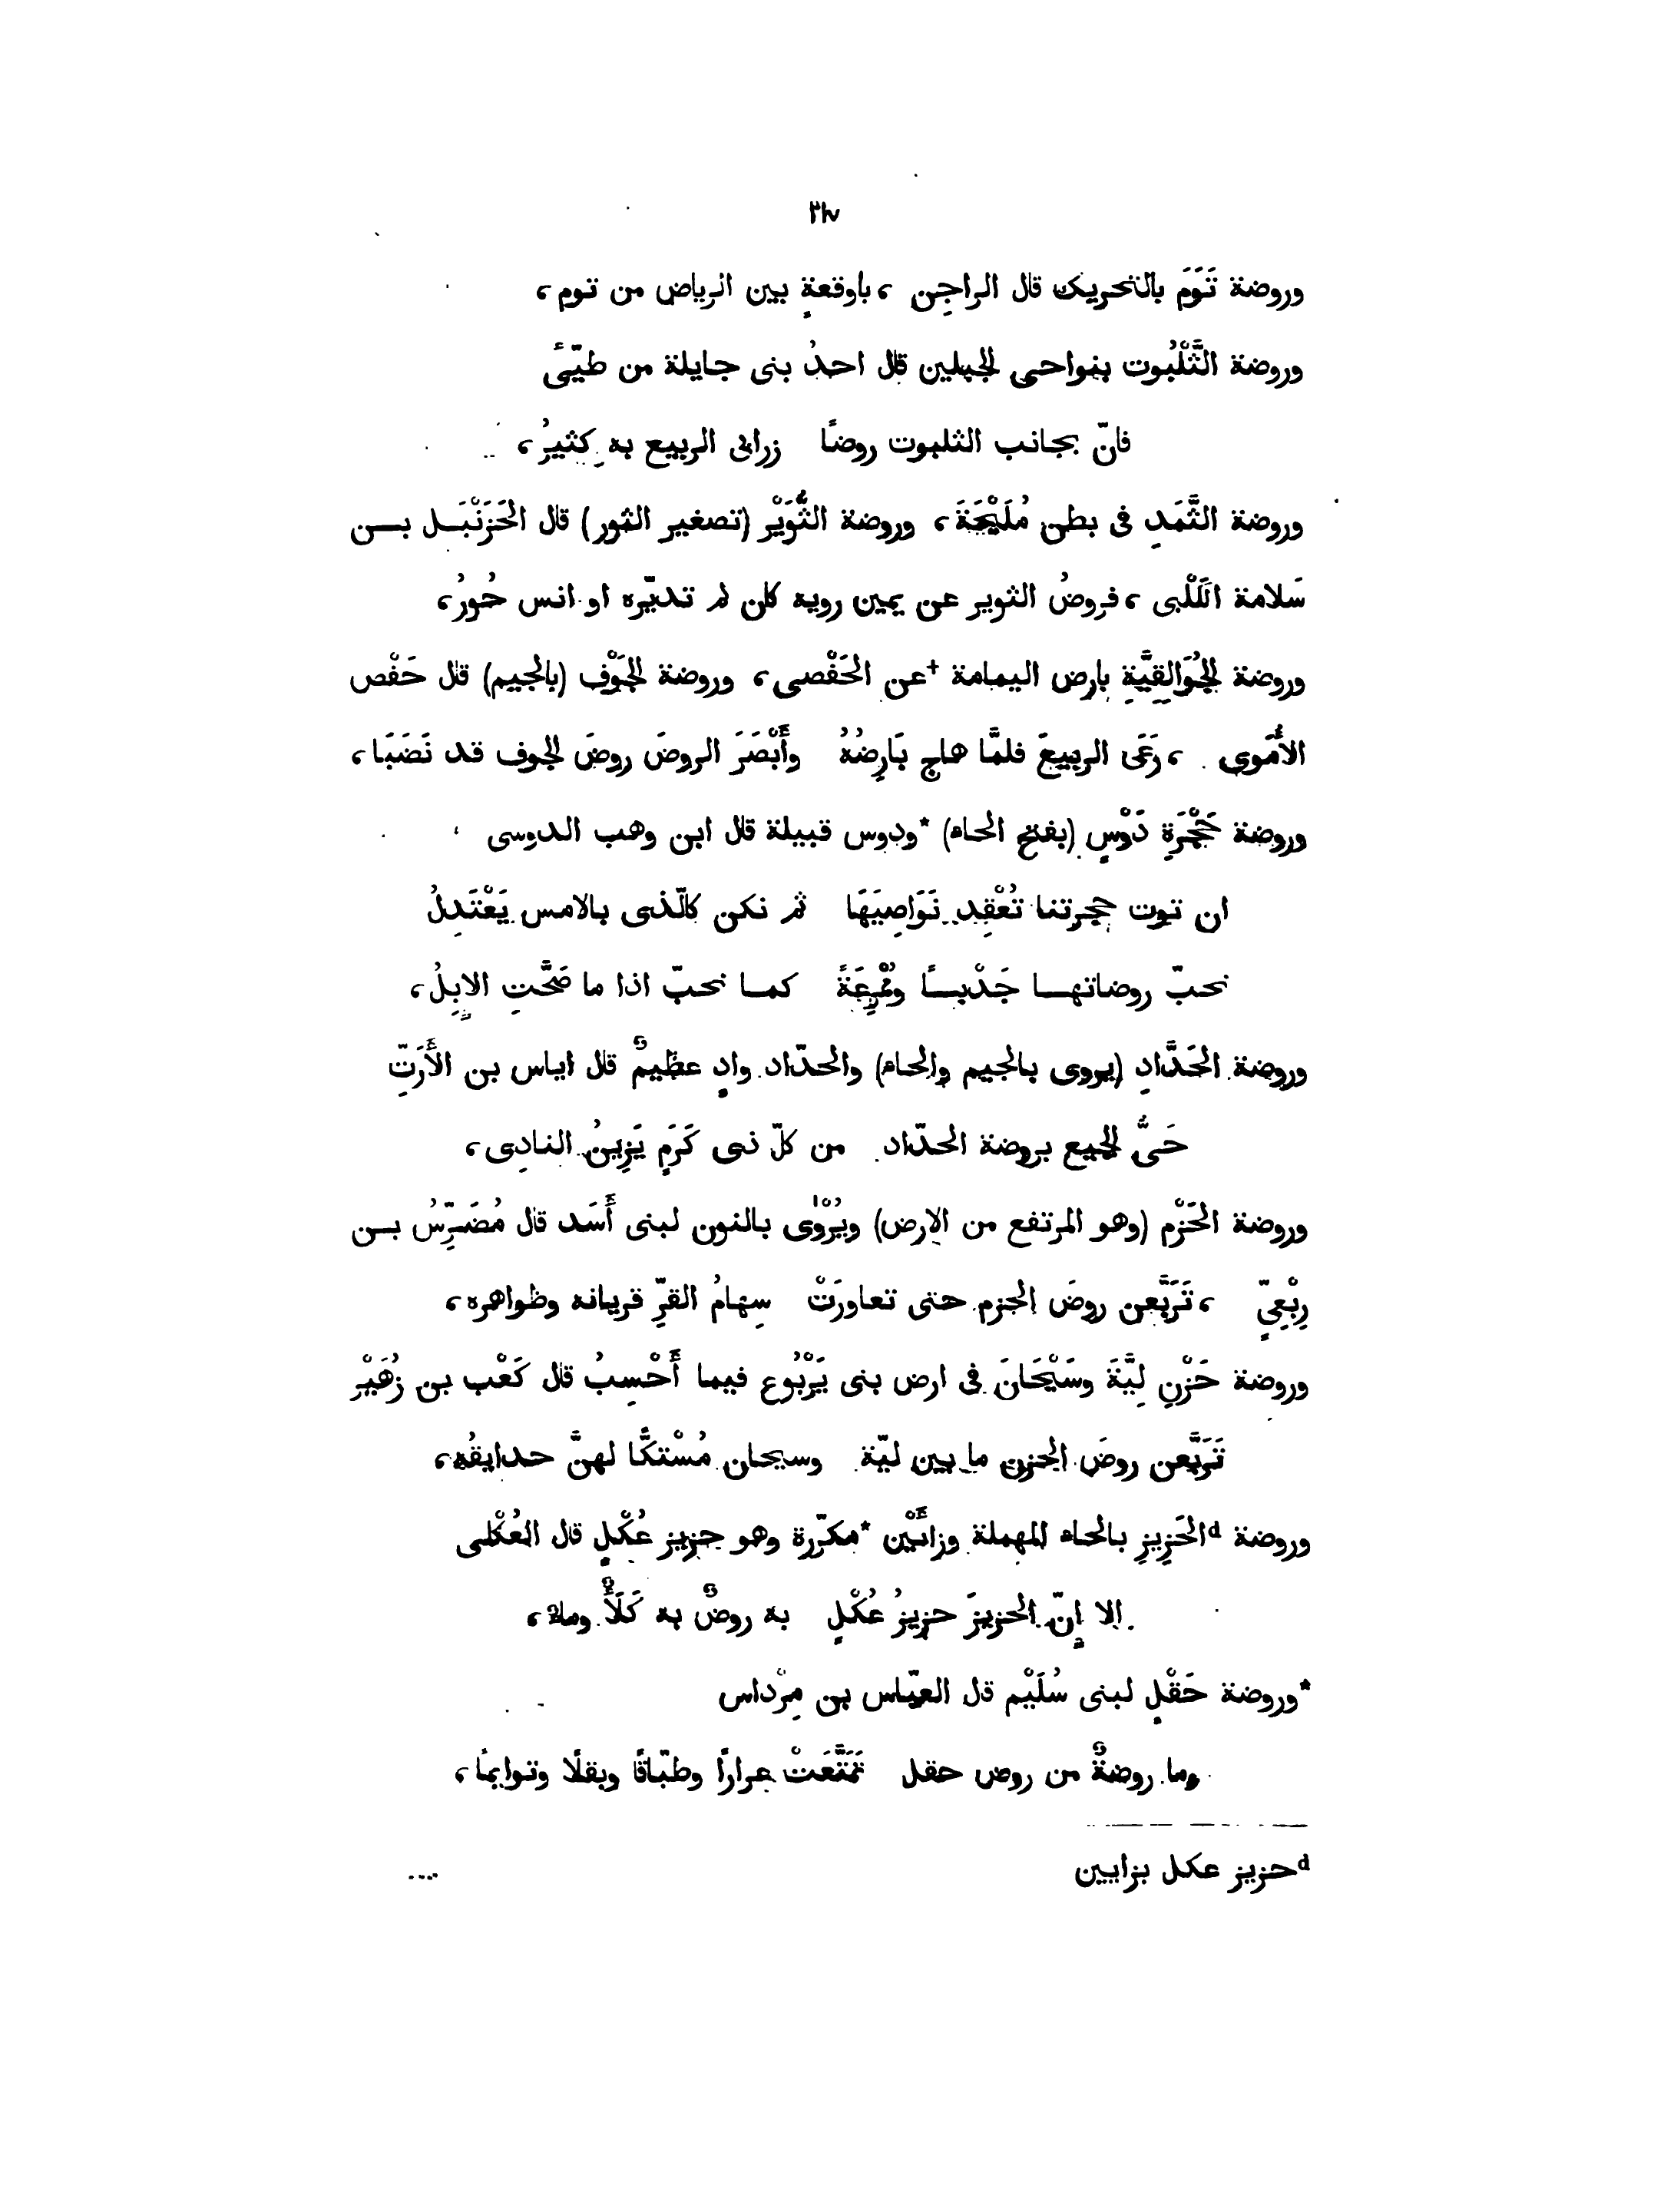 ٢١٧
وروضة تَوَمَ بالتحريك قال الراجز ، باوقعةٍ بين الرياض من توم ،
وروضة الثَّلْبُوت بنواحى الجبلين قال احدُ بنى جايلة من طيّئ
فانّ بجانب الثلبوت روضًا زرابى الربيع به كثيرُ ،
وروضة الثَّمَدِ فى بطن مُلَيْحَةَ ، وروضة الثُّوَيْر (تصغير الثور) قال الحَزَنْبَل بن
سَلامة الكَلْبى ، فروضُ الثوير عن يمين رويه كان لم تديّره اوانس حُورُ ،
وروضة الجُوَالِقِيَّةِ بارض اليمامة +عن الحَفْصى ، وروضة الجَوْف (بالجيم) قال حَفْص
الأُمَوى ، رَعَى الربيعَ فلمَّا هاج بَارِضُهُ وأَبْصَرَ الروضَ روضَ الجوف قد نَضَبَا ،
وروضة حَجْرَةِ دَوْسٍ (بفتح الحاء) *ودوس قبيلة قال ابن وهب الدوسى
ان توت حجرتنا تُعْقِد نَوَاصِيَهَا ثم نكن كالّذى بالامس يَعْتَدِلُ
نحبّ روضاتها جَدْبًا ومُمْرِعَةً كما نحبّ اذا ما صَحَّتِ الابِلُ ،
وروضة الحَدَّادِ (يروى بالجيم والحاء) والحدّاد وادٍ عظيمٌ قال اياس بن الأَرَتِّ
حَىُّ الجميع بروضة الحدّاد من كلّ ذى كَرَمٍ يَزِينُ النادِى ،
وروضة الحَزْم (وهو المرتفع من الارض) ويُرْوٰى بالنون لبنى أَسَد قال مُضَرِّسُ بن
رِبْعِىٍّ ، تَرَبَّعن روضَ الحزم حتى تعاورَتْ سِهامُ القرِّ قريانه وظواهره ،
وروضة حَزْنِ لِيَّةَ وسَيْحَانَ فى ارض بنى يَرْبُوع فيما أَحْسِبُ قال كَعْب بن زُهَيْر
تَرَبَّعن روضَ الحزن ما بين ليّة وسيحان مُسْتكًّا لهنَّ حدايقُه ،
وروضة dالحَزِيزِ بالحاء المهملة وزائَيْن *مكرّرة وهو حزيز عُكْلٍ قال العُكْلى
الا إِنّ الحزيزَ حزيزُ عُكْلٍ به روضٌ به كَلَأٌ وماءٌ ،
*وروضة حَقْلٍ لبنى سُلَيْم قال العبّاس بن مِرْداس
وما روضةٌ من روض حقل تَمَتَّعَتْ عرارًا وطبّاقًا وبقلًا وتوايمًا ،
dحزيز عكل بزايين